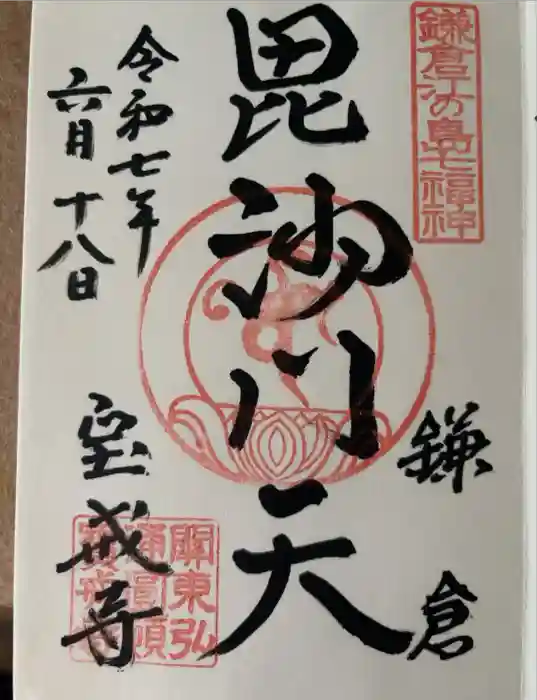 鎌倉江の島七福神
鎌倉
毘沙門天
令和七年
六月十八日
宝戒寺
關東弘
通圓頓
寳戒寺